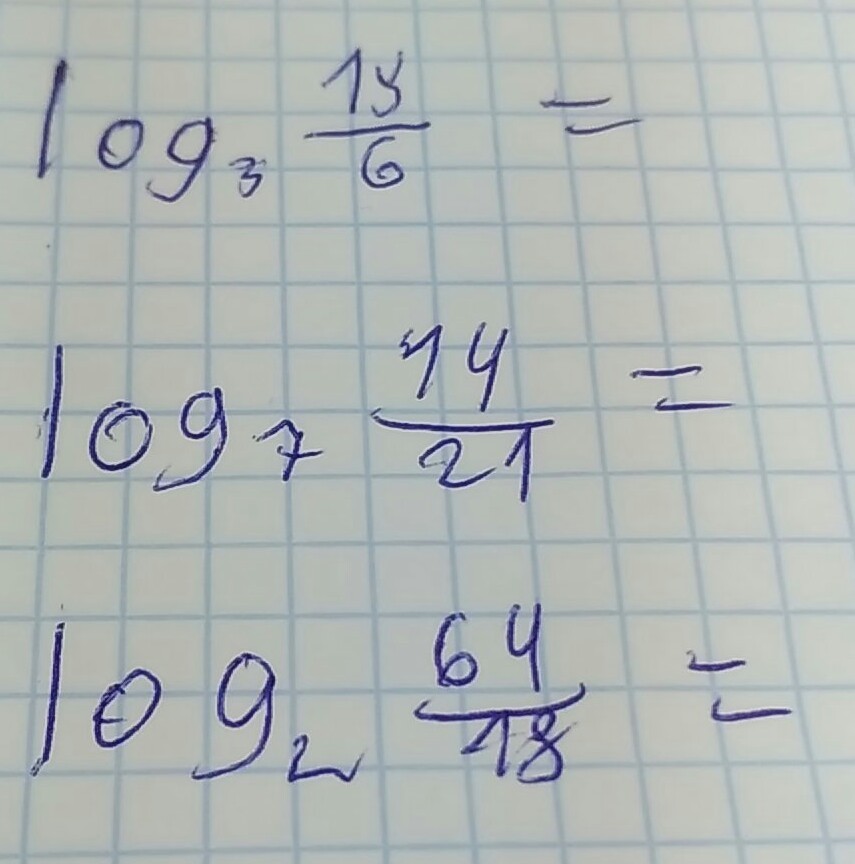 log₃ 18/6 =
log₇ 14/21 =
log₂ 64/18 =